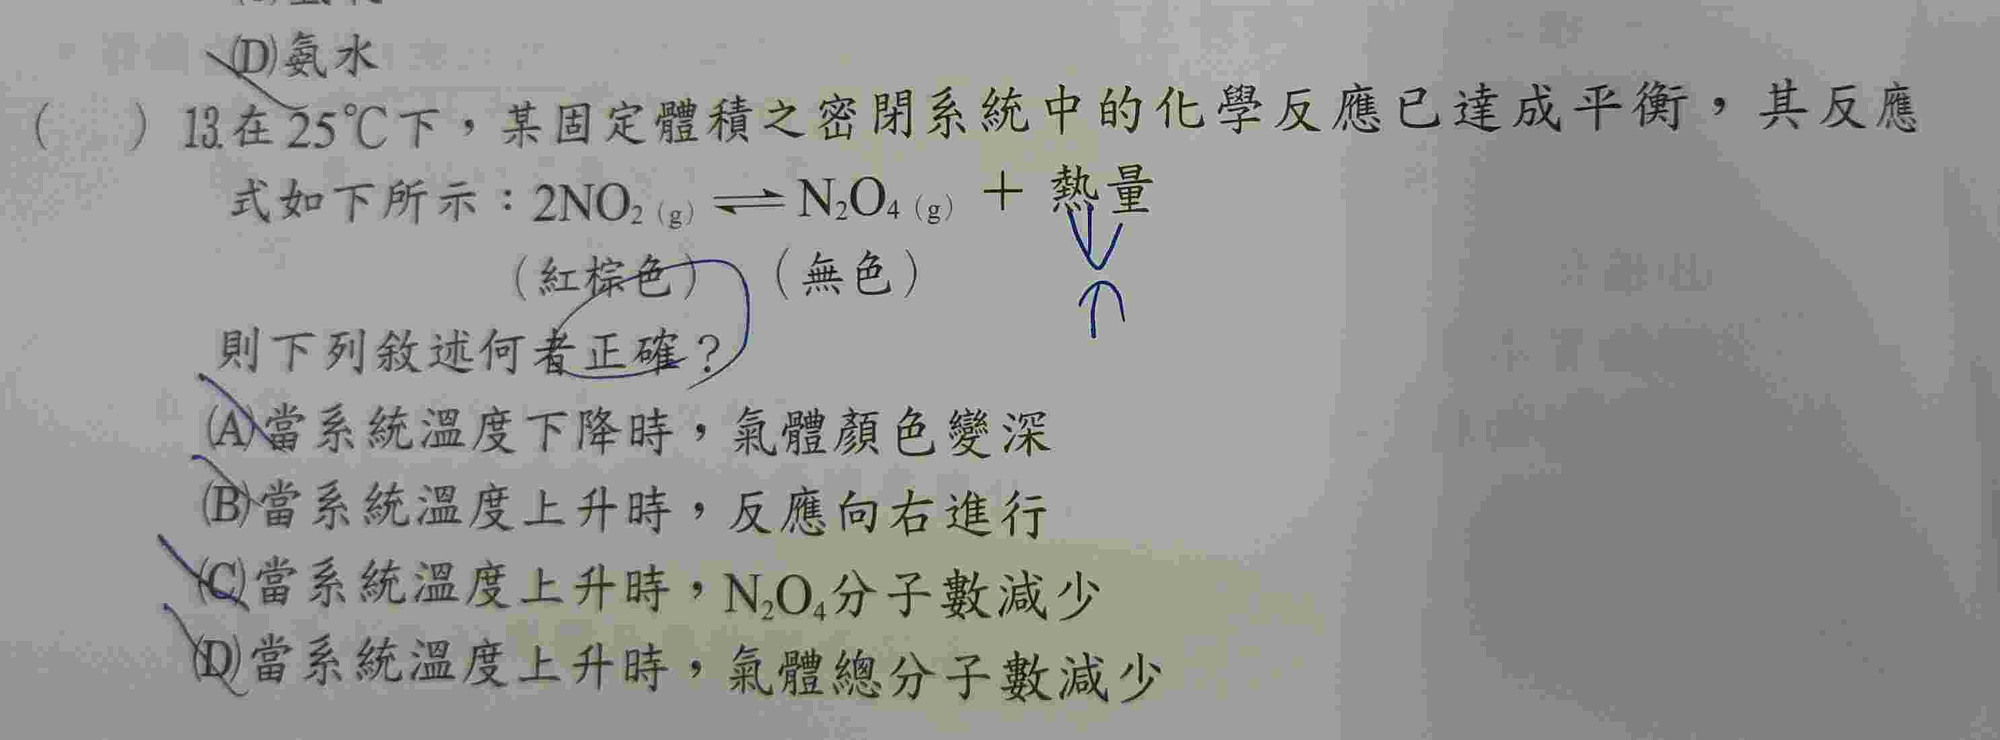 (D)氨水
(　)13.在25℃下，某固定體積之密閉系統中的化學反應已達成平衡，其反應
式如下所示：2NO₂(g) ⇌ N₂O₄(g) + 熱量
(紅棕色) (無色)
則下列敘述何者正確？
(A)當系統溫度下降時，氣體顏色變深
(B)當系統溫度上升時，反應向右進行
(C)當系統溫度上升時，N₂O₄分子數減少
(D)當系統溫度上升時，氣體總分子數減少